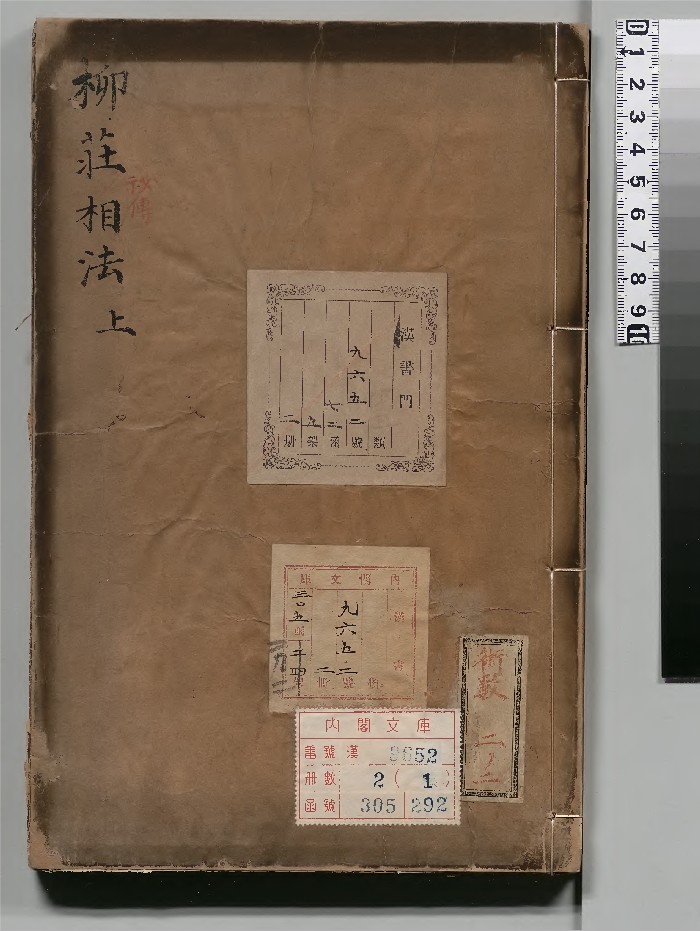 柳莊相法 上
秘傳
漢書門
類
九六五二號
七二函
九架
二册
内閣文庫
漢書
九六五二號
二冊
三〇五函
二十四架
内閣文庫
番號 漢 9652
册數 2 (1)
函號 305 292
術数
二ノ二
0 1 2 3 4 5 6 7 8 9 10